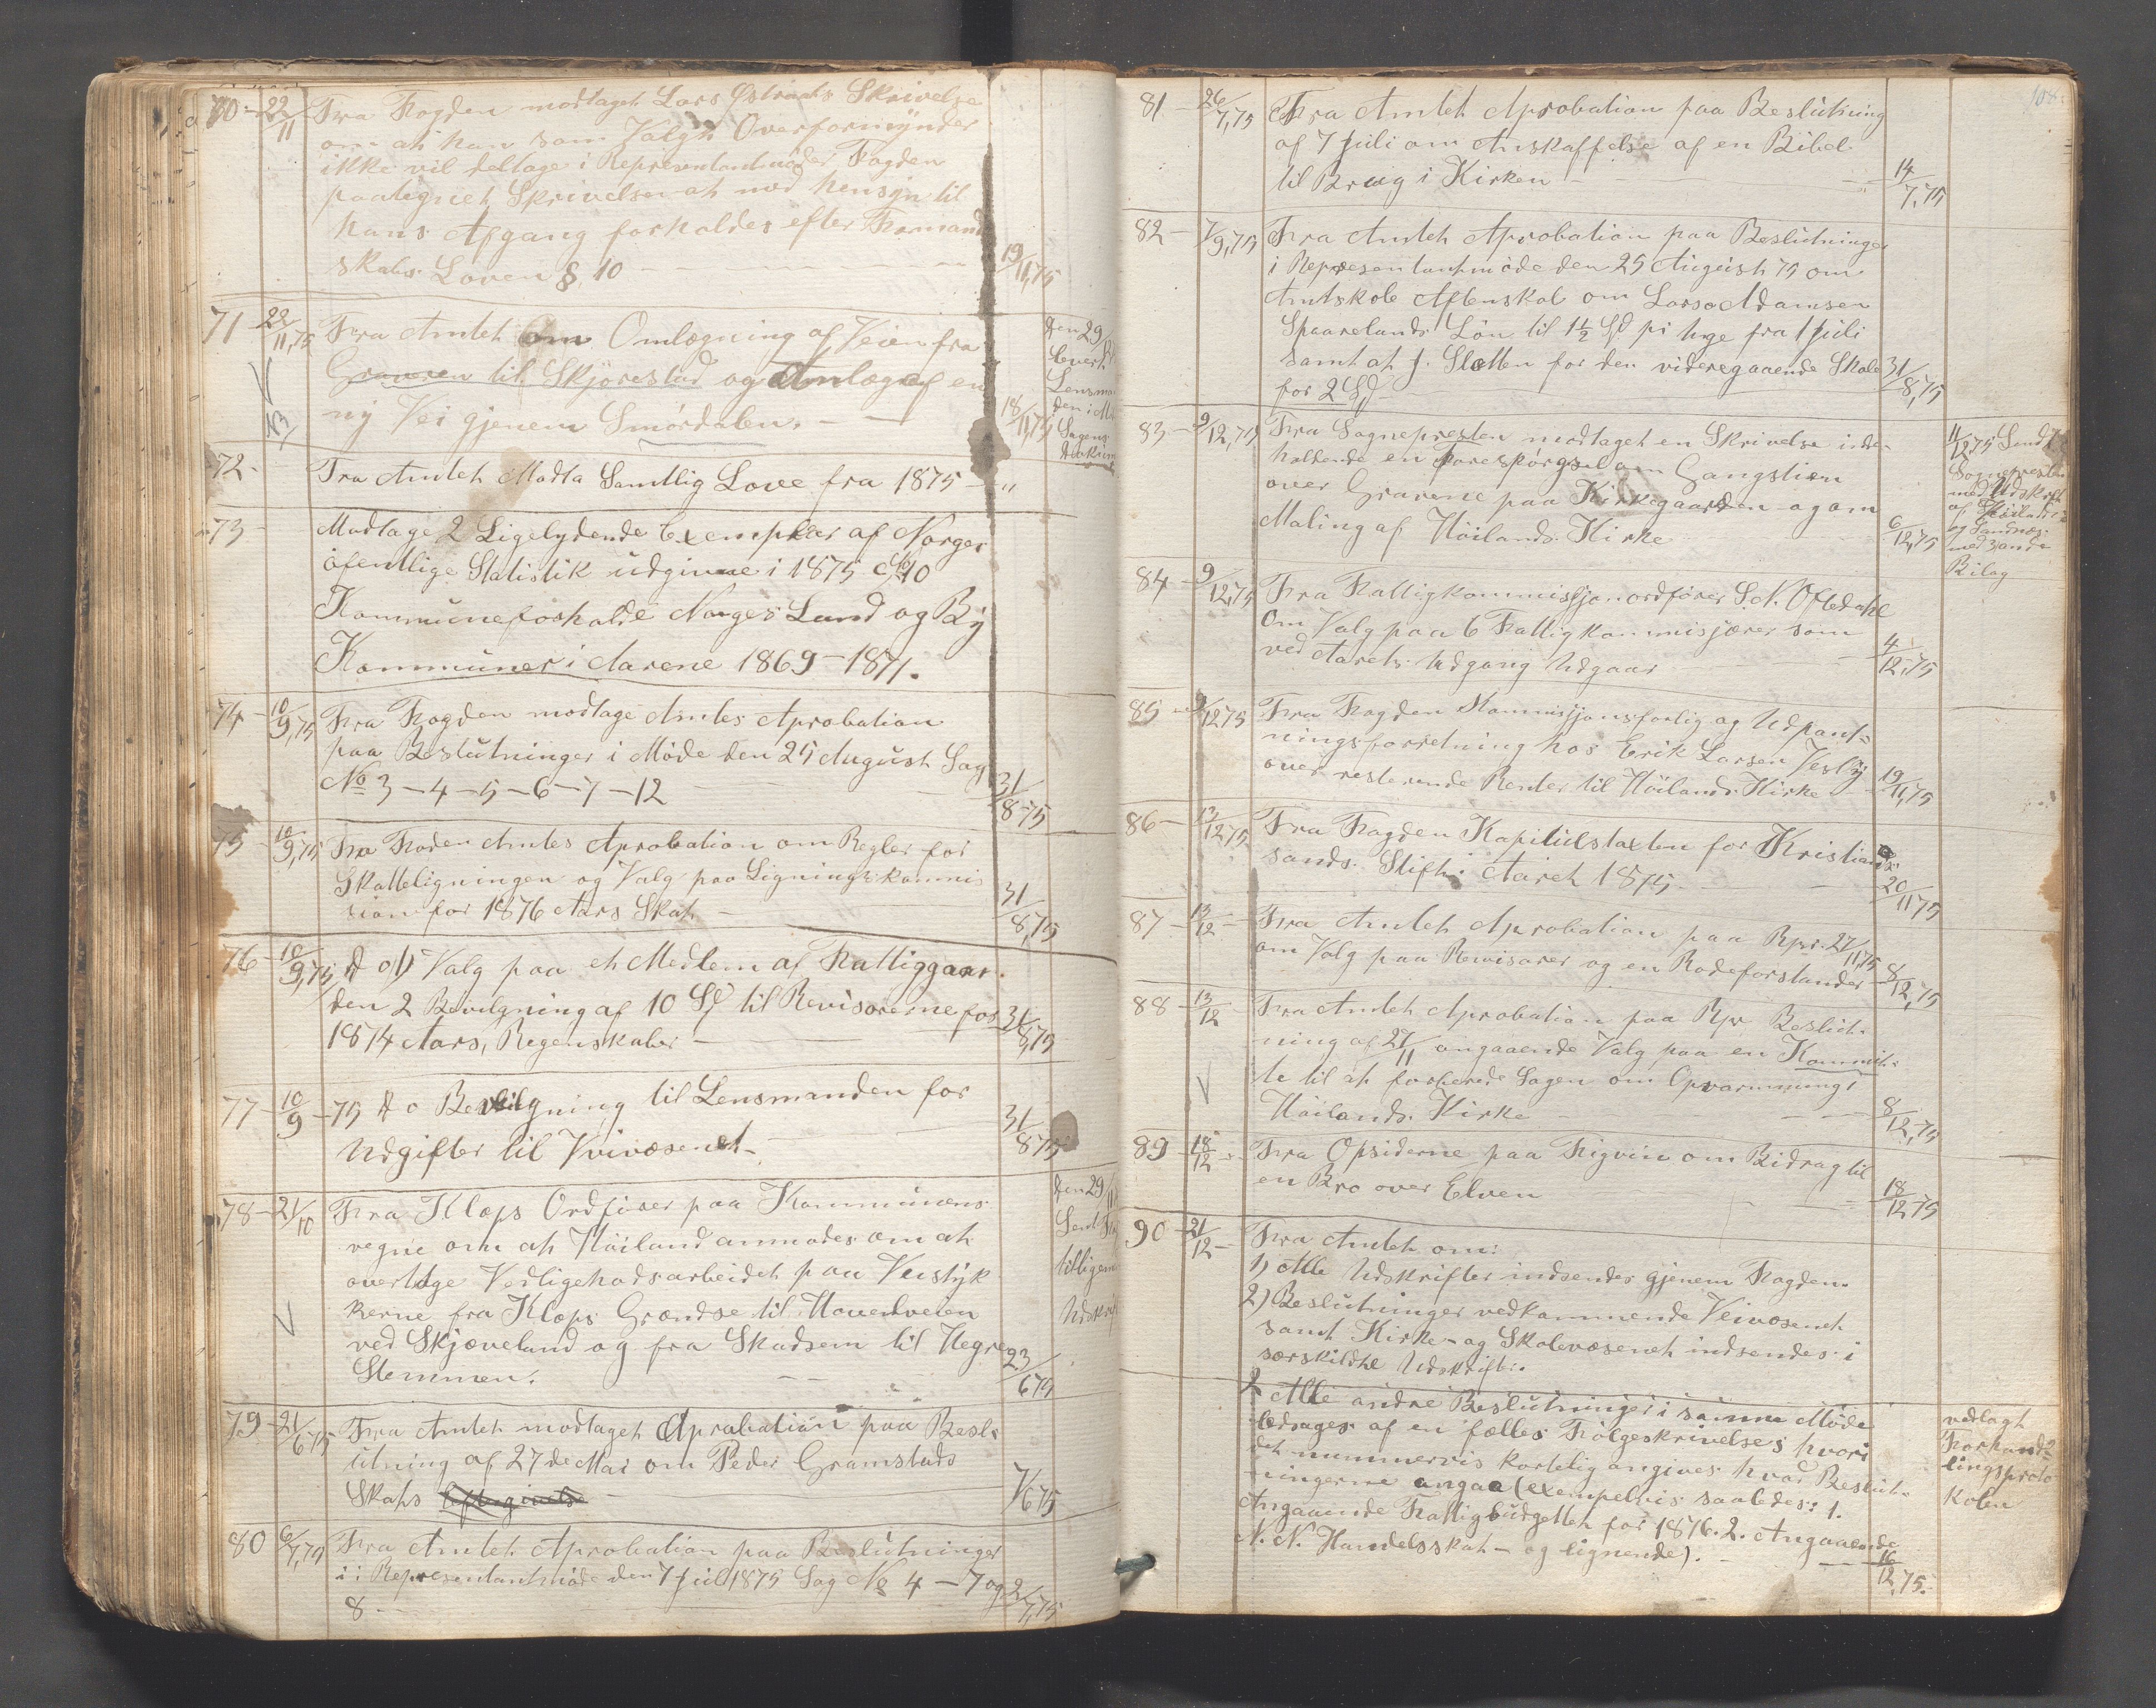 70 - 22/11 Fra Fogden modtaget Lars Østraats Skrivelse
om at han som Valgt Overformynder
ikke vil deltage i Represententmøder Fogden
paategnet Skrivelsen at med hensyn til
hans Afgang forholdes efter Formand
skabs Loven § 10 - 19/11,75
71 - 22/11,75 Fra Amtet om Omlægning af Veien fra
Graveren til Skjørestad og Anlæg af en
ny Vei gjenem Smördalen. - 18/11,75
den 29/11
Lensma
den i
Sagens
Dokum
72 - Fra Amtet Modta Samtlig Love fra 1875 - "
73 - Modtage 2 Ligelydende Exemplar af Norges
öfentlige Statistik udgivne i 1875 C No 10
Kommuneforholde Norges Land og By
Kommuner i Aarene 1869 - 1871.
74 - 10/9,75 Fra Fogden modtage Amtes Aprobation
paa Beslutninger i Möde den 25 August Sag
No 3 - 4 - 5 - 6 - 7 - 12 31/8 75
75 - 10/9,75 Fra Foden Amtes Aprobation om Regler for
Skatteligningen og Valg paa Ligningskommis
sion for 1876 Aars Skat - 31/8,75
76 - 10/9,75 do 1) Valg paa et Medlem af Fattiggaar
den 2 Bevilgning af 10 Sp til Revisorerne for
1874 Aars, Regenskaber - 31/8,75
77 - 10/9 - 75 do Bevilgning til Lensmanden for
Udgifter til Vrivæsenet - 31/8 75
78 - 21/10 Fra Kleps Ordfører paa Kommunens
vegne om at Höiland anmodes om at
overtage Vedligehodsarbeidet paa Veistyk
kerne fra Kleps Grændse til Hovedveien
ved Skjæveland og fra Skadsem til Hegre
Stemmen. - 23/6 75
den 29/11
Sent
tilligem
Udskrif
79 - 21/6 75 Fra Amtet modtaget Aprobation paa Besl-
utning af 27de Mai om Peder Gramstads
Skats Eftergivelse - 7/6 75
80 6/7,75 Fra Amtet Aprobation paa Beslutninger
i: Representantmöde den 7 Juli 1875 Sag No 4 - 7 og
8 - 2/7,75
108
81 - 26/7,75 Fra Amtet Aprobation paa Beslutning
af 7 Juli om Anskaffelse af en Bibel
til Brug i Kirken - 14/7,75
82 - 7/9,75 Fra Amtet Aprobation paa Beslutninger
i Represen tantmöde den 25 August 75 om
Amtskole Aftenskol om Lars Adamsen
Spaarelands Lön til 1½ Spd pr uge fra 1 Juli
samt at J. Sletten for den videregaaende Skole
for 2 Spd - 31/8,75
83 - 9/12,75 Fra Sognepresten modtaget en Skrivelse inde-
holdende en Forespörgsel om Gangstien
over Gravene paa Kirkegaarden og om
Maling af Höilands Kirke 6/12,75
11/12 75 Sendt
Sognepresten
med Udskrift
af Höilands
og Sandnes
med 3 andre
Bilag
84 - 9/12,75 Fra Fattigkommissjonordförer S. N. Oftedahl
Om Valg paa 6 Fattigkommisjærer som
ved Aarets Udgang Udgaar - 4/12,75
85 - 9/12 75 Fra Fogden Kommissjonsforlig og Udpant-
ningsforretning hos Erik Larsen Vestly
over resterende Renter til Höilands Kirke - 19/11,75
86 - 13/12 75 Fra Fogden Kapitelstaxten for Kristians-
sands Stift i Aaret 1875. - 20/11 75
87 - 13/12 - Fra Amtet Aprobation paa Rpr. 27/11,75
om Valg paa Revisorer og en Rodeforstander 8/12,75
88 - 13/12 Fra Amtet Aprobation paa Rpr Beslut-
ning af 27/11 angaaende Valg paa en Kommit-
te til at forberede Sagen om Opvarmning i
Höilands Kirke - 8/12,75
89 - 18/12 - Fra Opsiderne paa Figvin om Bidrag til
en Bro over Elven 18/12 75
90 - 21/12 - Fra Amtet om:
1) Alle Udskrifter indsendes gjenem Fogden.
2) Beslutninger vedkommende Veivæsenet
samt Kirke- og Skolevæsenet indsendes i
særskildte Udskrifter.
Alle andre Beslutninger i samme Möde
ledsages af en fælles Fölgeskrivelse, hvori
det nummervis kortelig angives hvad Beslut-
ningerne angaa (exempelvis saaledes: 1.
Angaaende Fattigbudgettet for 1876. 2. Angaaende
N. N. Handelsskat - og lignende). - 16/12,75.
vedlagt
Forhand-
lingsproto
kolen